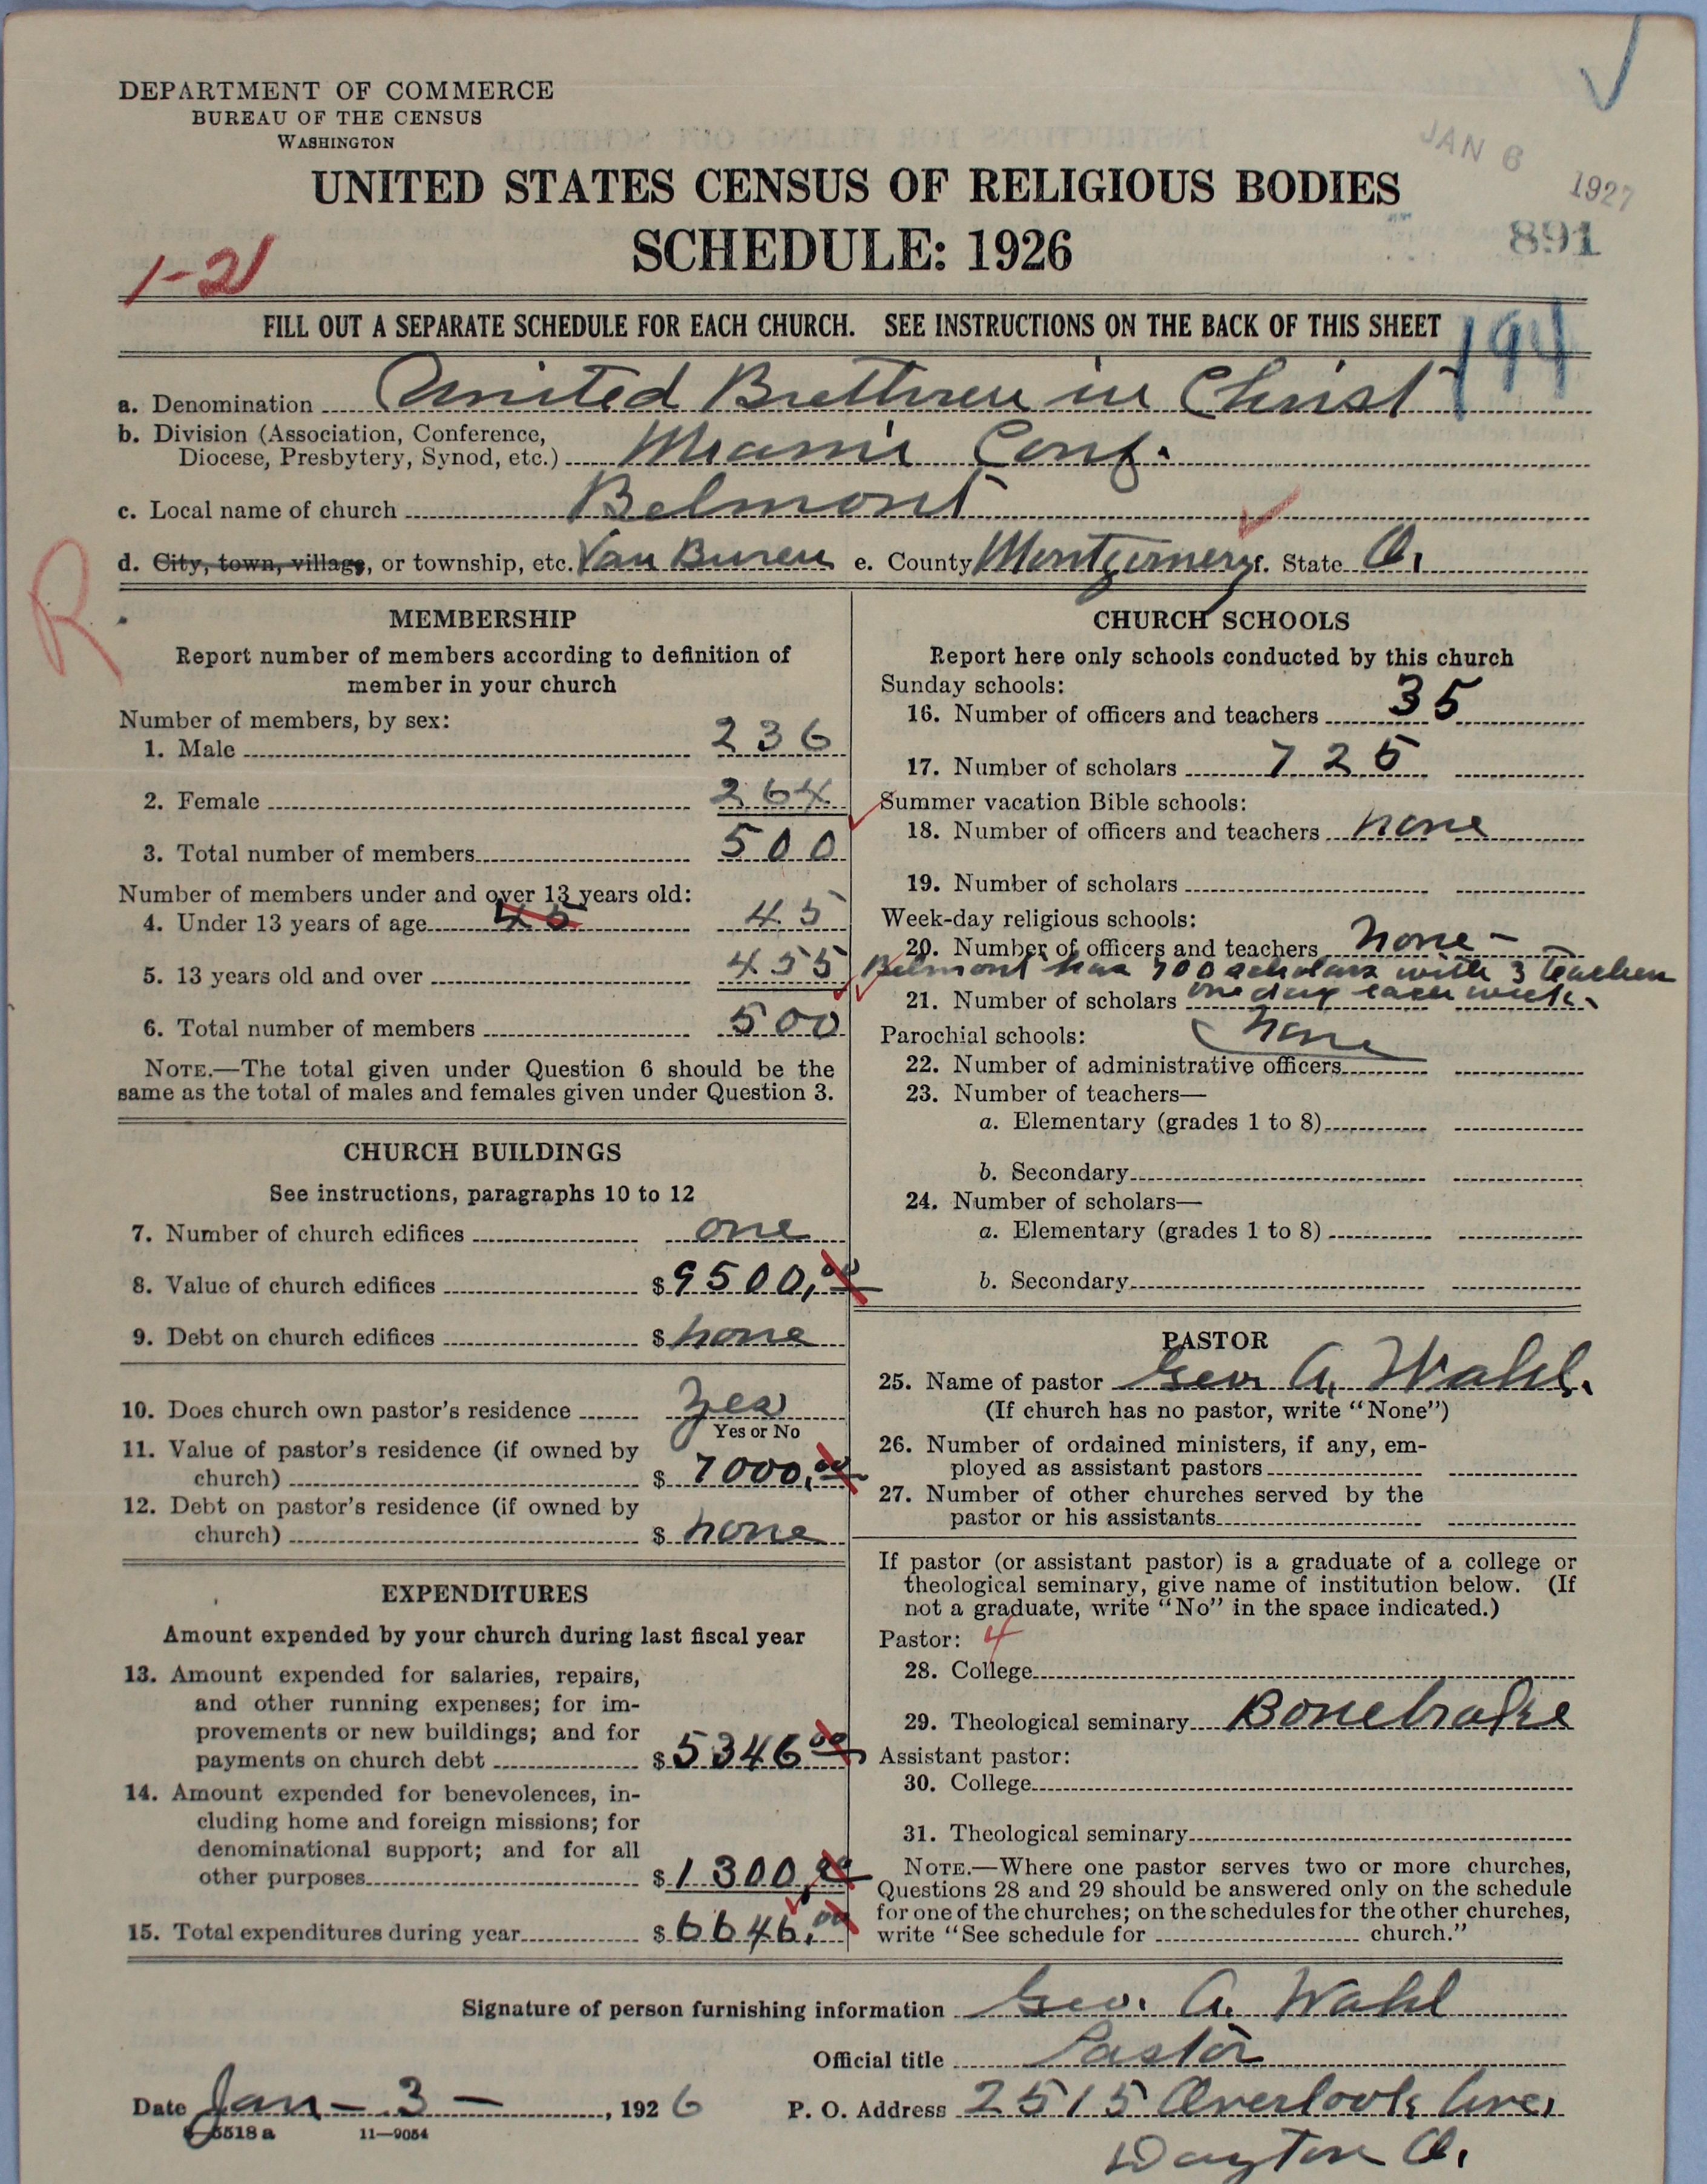 DEPARTMENT OF COMMERCE
BUREAU OF THE CENSUS
WASHINGTON
JAN 6 1927
UNITED STATES CENSUS OF RELIGIOUS BODIES
SCHEDULE: 1926
891
1-21
FILL OUT A SEPARATE SCHEDULE FOR EACH CHURCH. SEE INSTRUCTIONS ON THE BACK OF THIS SHEET
194
a. Denomination United Brethren in Christ
b. Division (Association, Conference,
Diocese, Presbytery, Synod, etc.) Miami Conf.
c. Local name of church Belmont
d. City, town, village, or township, etc. Van Buren e. County Montgomery f. State O.
R
MEMBERSHIP
Report number of members according to definition of
member in your church
Number of members, by sex:
1. Male 236
2. Female 264
3. Total number of members 500
Number of members under and over 13 years old:
4. Under 13 years of age 45 45
5. 13 years old and over 455
6. Total number of members 500
NOTE.—The total given under Question 6 should be the
same as the total of males and females given under Question 3.
CHURCH BUILDINGS
See instructions, paragraphs 10 to 12
7. Number of church edifices one
8. Value of church edifices $ 9500,00
9. Debt on church edifices $ none
10. Does church own pastor's residence Yes
Yes or No
11. Value of pastor's residence (if owned by
church) $ 7000,00
12. Debt on pastor's residence (if owned by
church) $ none
EXPENDITURES
Amount expended by your church during last fiscal year
13. Amount expended for salaries, repairs,
and other running expenses; for im-
provements or new buildings; and for
payments on church debt $ 5346 00
14. Amount expended for benevolences, in-
cluding home and foreign missions; for
denominational support; and for all
other purposes $ 1300,00
15. Total expenditures during year $ 6646,00
CHURCH SCHOOLS
Report here only schools conducted by this church
Sunday schools:
16. Number of officers and teachers 35
17. Number of scholars 725
Summer vacation Bible schools:
18. Number of officers and teachers none
19. Number of scholars
Week-day religious schools:
20. Number of officers and teachers none -
Belmont has 700 scholars with 3 teachers
21. Number of scholars one day each week.
Parochial schools: none
22. Number of administrative officers
23. Number of teachers—
a. Elementary (grades 1 to 8)
b. Secondary
24. Number of scholars—
a. Elementary (grades 1 to 8)
b. Secondary
PASTOR
25. Name of pastor Geo. A. Wahl.
(If church has no pastor, write "None")
26. Number of ordained ministers, if any, em-
ployed as assistant pastors
27. Number of other churches served by the
pastor or his assistants
If pastor (or assistant pastor) is a graduate of a college or
theological seminary, give name of institution below. (If
not a graduate, write "No" in the space indicated.)
Pastor: 4
28. College
29. Theological seminary Bonebrake
Assistant pastor:
30. College
31. Theological seminary
NOTE.—Where one pastor serves two or more churches,
Questions 28 and 29 should be answered only on the schedule
for one of the churches; on the schedules for the other churches,
write "See schedule for church."
Signature of person furnishing information Geo. A. Wahl
Official title Pastor
Date Jan - 3 -, 1926 P. O. Address 2515 Overlook Ave,
8-5518 a 11-9054
Dayton O.